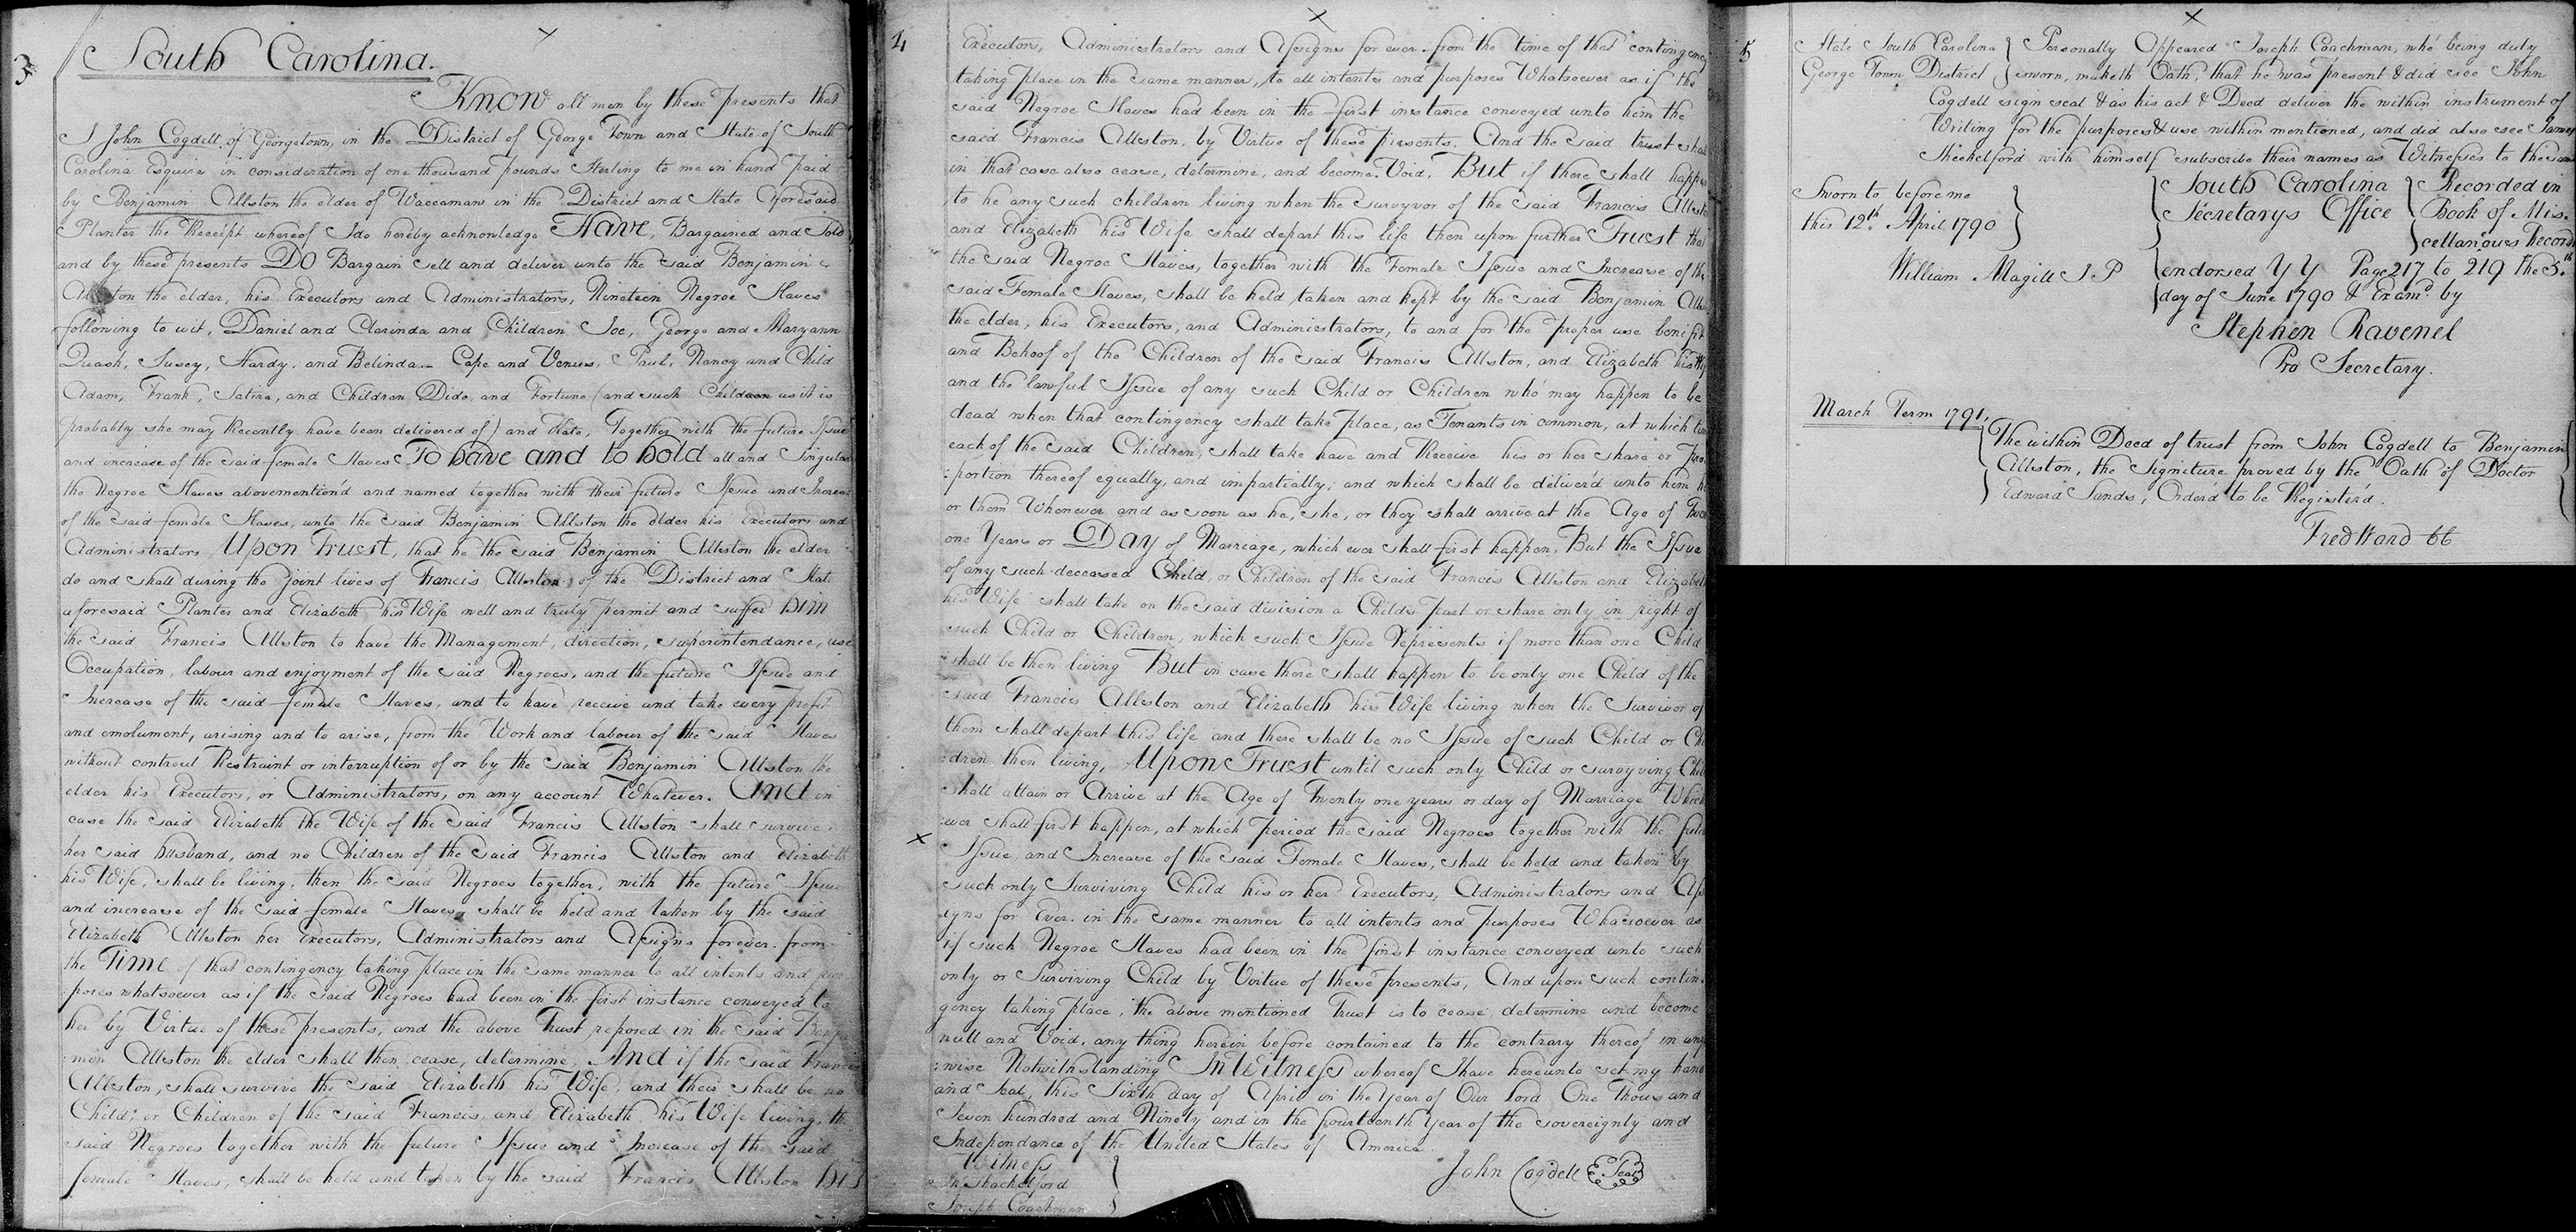 3
South Carolina.
Know all men by these Presents that
I John Cogdell of Georgetown, in the District of George Town and State of South
Carolina Esquire in consideration of one thousand pounds Sterling to me in hand paid
by Benjamin Allston the elder of Waccamaw in the District and State Aforesaid
Planter the Receipt whereof I do hereby acknowledge Have, Bargained and Sold
and by these presents Do Bargain sell and deliver unto the said Benjamin
Allston the elder, his Executors and Administrators, Nineteen Negroe Slaves
following to wit, Daniel and Clarinda and Children Joe, George and Maryann
Quash, Susey, Hardy, and Belinda Cape and Venus, Paul, Nancy and Child
Adam, Frank, Satira, and Children Dido and Fortune (and such Children as it is
probably she may Recently have been delivered of) and Kate, Together with the future Issue
and increase of the said female Slaves To have and to hold all and Singular
the Negroe Slaves abovemention'd and named together with their future Issue and Increase
of the said female Slaves, unto the said Benjamin Allston the elder his Executors and
Administrators Upon Trust, that he the said Benjamin Allston the elder
do and shall during the joint lives of Francis Allston of the District and State
aforesaid Planter and Elizabeth his Wife well and truly permit and suffer him
the said Francis Allston to have the Management, direction, superintendance, use
Occupation, labour and enjoyment of the said Negroes, and the future Issue and
Increase of the said female Slaves, and to have receive and take every profit
and emolument, arising and to arise, from the Work and labour of the said Slaves
without controul Restraint or interruption of or by the said Benjamin Allston the
elder his Executors, or Administrators, on any account Whatever. And in
case the said Elizabeth the Wife of the said Francis Allston shall survive
her said husband, and no Children of the said Francis Allston and Elizabeth
his Wife, shall be living, then the said Negroes together, with the future Issue
and increase of the said female Slaves, shall be held and taken by the said
Elizabeth Allston her Executors, Administrators and Assigns forever from
the Time of that contingency taking place in the same manner to all intents and pur
:poses whatsoever as if the said Negroes had been in the first instance conveyed to
her by Virtue of these Presents, and the above Trust reposed in the said Benja
:min Allston the elder shall then cease, determine. And if the said Francis
Allston, shall survive the said Elizabeth his Wife, and their shall be no
Child or Children of the said Francis, and Elizabeth his Wife living, the
said Negroes together with the future Issue and Increase of the said
female Slaves, shall be held and taken by the said Francis Allston his
4
Executors, Administrators and Assigns for ever from the time of that contingency
taking place in the same manner, to all intents and purposes Whatsoever as if the
said Negroe Slaves had been in the first instance conveyed unto him the
said Francis Allston, by Virtue of these presents. And the said trust shall
in that case also cease, determine, and become Void. But if there shall happen
to be any such children living when the survyvor of the said Francis Allston
and Elizabeth his Wife shall depart this life then upon further Trust that
the said Negroe Slaves, together with the Female Issue and Increase of the
said Female Slaves, shall be held taken and kept by the said Benjamin Allston
the elder, his Executors, and Administrators, to and for the proper use benifit
and Behoof of the Children of the said Francis Allston, and Elizabeth his Wife
and the lawful Issue of any such Child or Children who may happen to be
dead when that contingency shall take place, as Tenants in common, at which time
each of the said Children, shall take have and Receive his or her share or Pro
:portion thereof equally, and impartially, and which shall be deliver'd unto him her
or them Whenever and as soon as he, she, or they shall arrive at the Age of Twenty
one Years or Day of Marriage, which ever shall first happen. But the Issue
of any such deceased Child, or Children of the said Francis Allston and Elizabeth
his Wife shall take on the said division a Childs part or share only in right of
such Child or Children, which such Issue Represents if more than one Child
shall be then living But in case there shall happen to be only one Child of the
said Francis Allston and Elizabeth his Wife living when the Survivor of
them shall depart this life and there shall be no Issue of such Child or Chil
:dren then living, Upon Trust until such only Child or survyving Child
shall attain or Arrive at the Age of Twenty one years or day of Marriage Which
:ever shall first happen, at which period the said Negroes together with the future
Issue, and Increase of the said Female Slaves, shall be held and taken by
such only Surviving Child his or her Executors, Administrators and Ass
:igns for Ever. in the same manner to all intents and purposes Whatsoever as
if such Negroe Slaves had been in the first instance conveyed unto such
only or Surviving Child by Virtue of these presents, And upon such contin
gency taking place, the above mentioned Trust is to cease, determine and become
null and Void, any thing herein before contained to the contrary thereof in any
:wise Notwithstanding In Witness whereof I have hereunto set my hand
and Seal, this Sixth day of April in the Year of Our Lord One Thousand
Seven hundred and Ninety and in the fourteenth Year of the sovereignty and
Independance of the United States of America.
Witness
Js Shackelford
Joseph Coachman
John Cogdell Seal
5
State South Carolina
George Town District
Personally Appeared Joseph Coachman, who being duly
sworn, maketh Oath, that he was present & did see John
Cogdell sign seal & as his act & Deed deliver the within instrument of
Writing for the purposes & use within mentioned, and did also see James
Sheckelford with himself subscribe their names as Witnesses to the same
Sworn to before me
this 12th April 1790
William Magill J P
South Carolina
Secretarys Office
Recorded in
Book of Mis.
cellanoues Records
endorsed Y Y Page 217 to 219 the 5th
day of June 1790 & Examd. by
Stephen Ravenel
Pro Secretary.
March Term 1791,
The within Deed of trust from John Cogdell to Benjamin
Allston, the Signiture proved by the Oath of Doctor
Edward Sands, Order'd to be Register'd.
Fred Ward CC